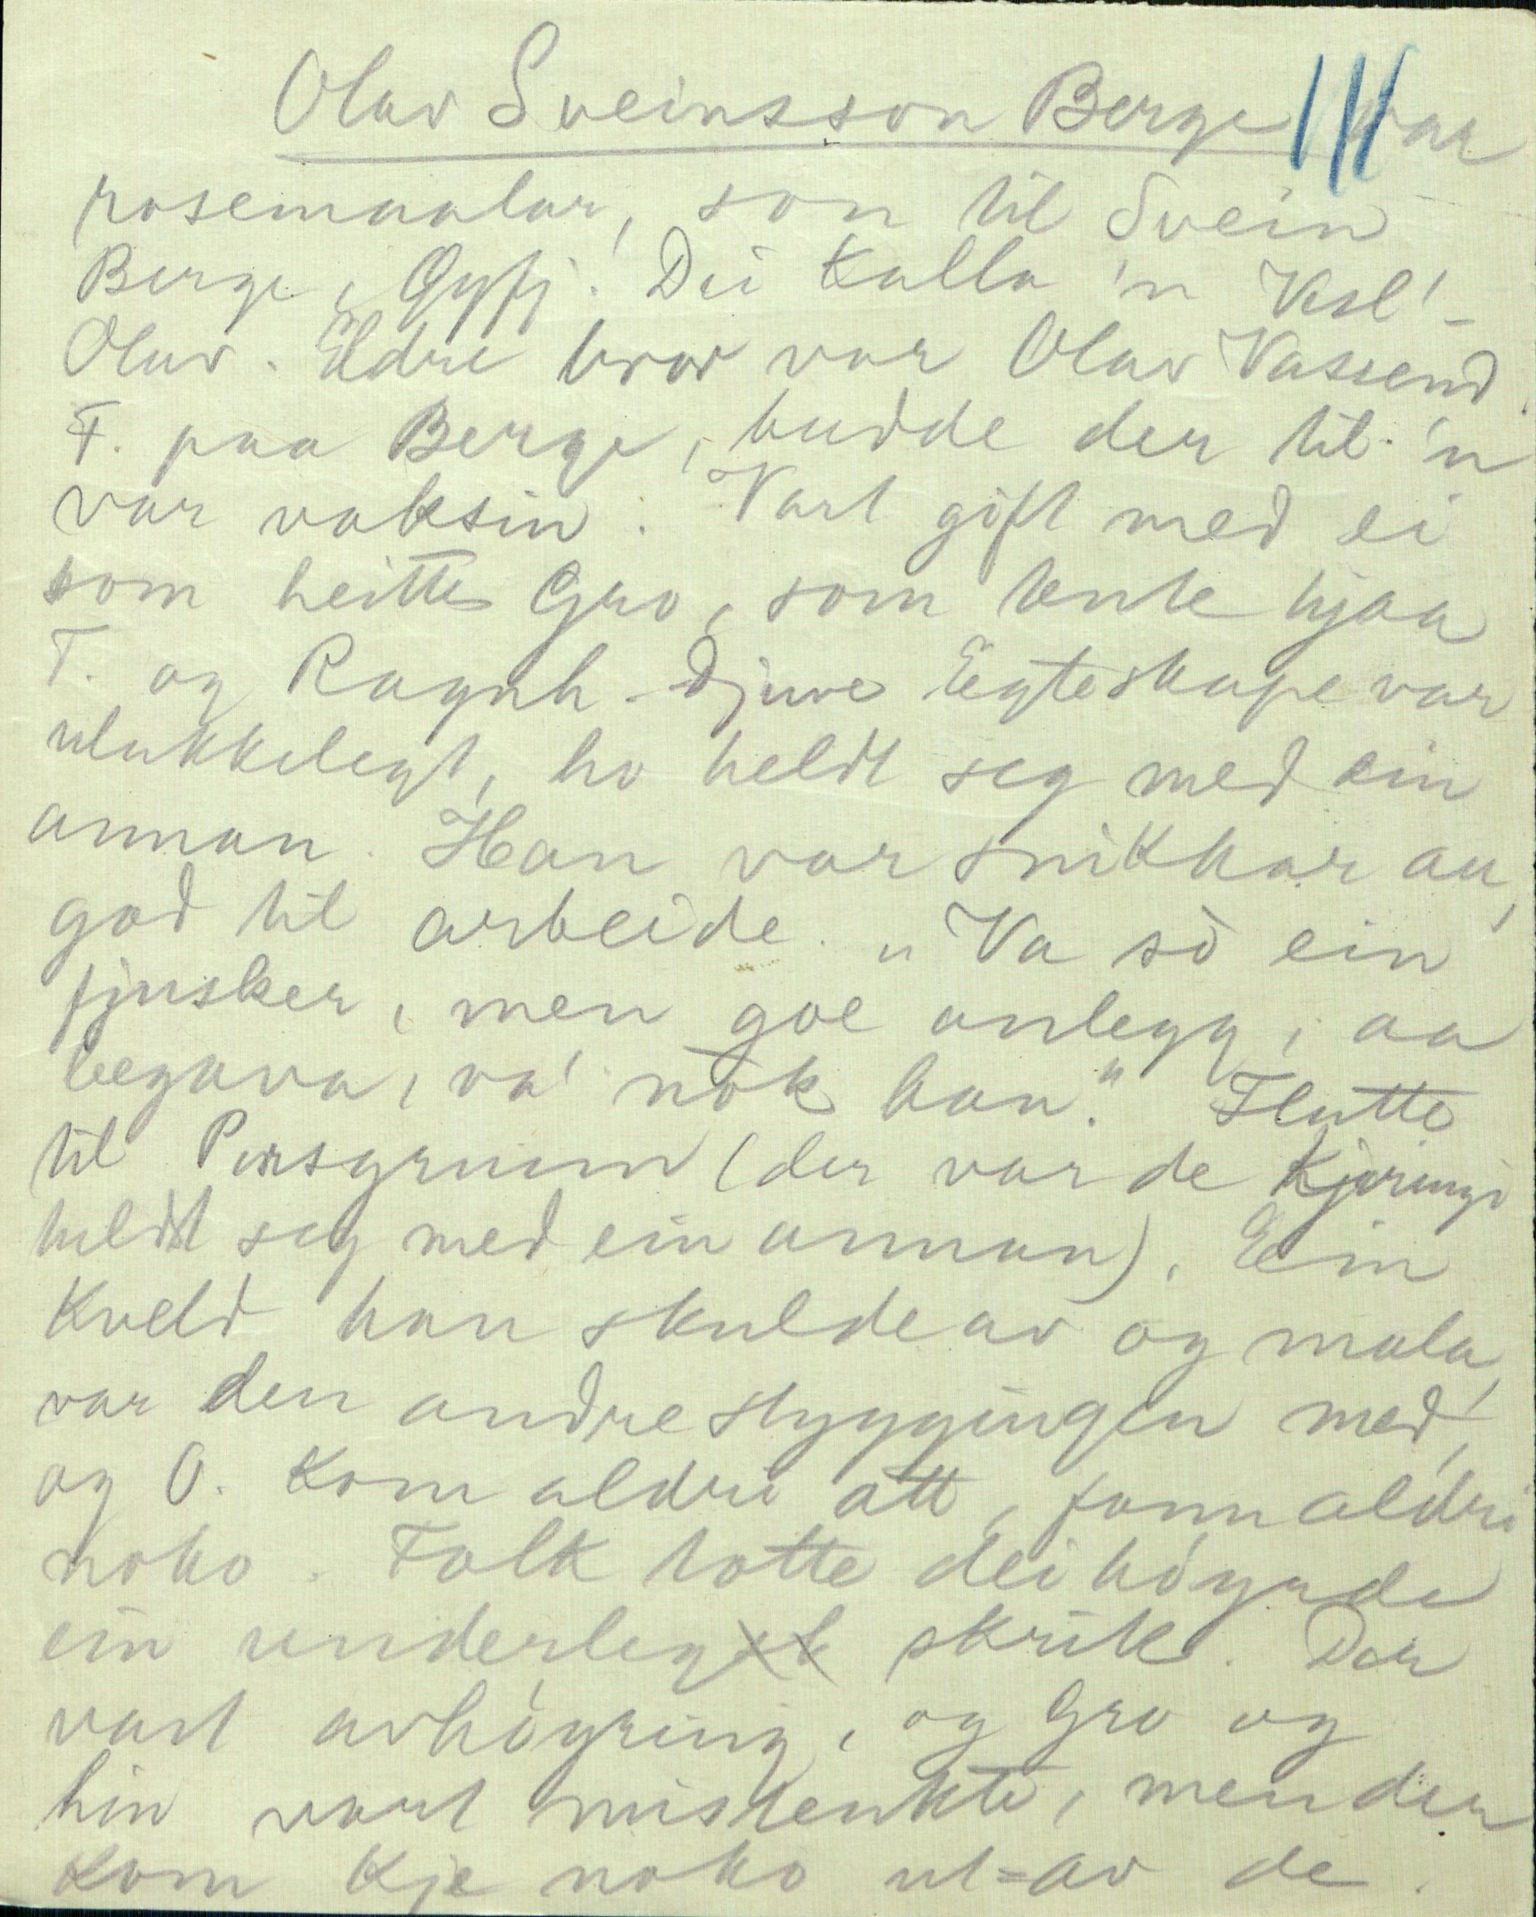 Olav Sveinsson Berge var
rosemaalar, son til Svein
Berge, Gyfj. Dei kalla 'n Vesl'-
Olav. Eldre bror var Olav Vassend.
F. paa Berge, budde der til 'n
var vaksin. Vart gift med ei
som heitte Gro, som tente hjaa
T. og Ragnh. Djuve. Egteskape var
ulukkelegt, ho heldt seg med ein
annan. Han var snikkar au,
god til arbeide. „Va so ein
fjusker, men goe anlegg, aa
begava, va' nok han." Flutte
til Porsgrunn (der var de kjeringi
heldt seg med ein annan). Ein
kveld han skulde av og mala,
var den andre styggingen med,
og O. kom aldri att, fann aldri
noko. Folk totte dei høyrde
ein underleg skrik. Der
vart avhøyring, og Gro og
hin vart mistenkte, men der
kom kje noko ut=av de.